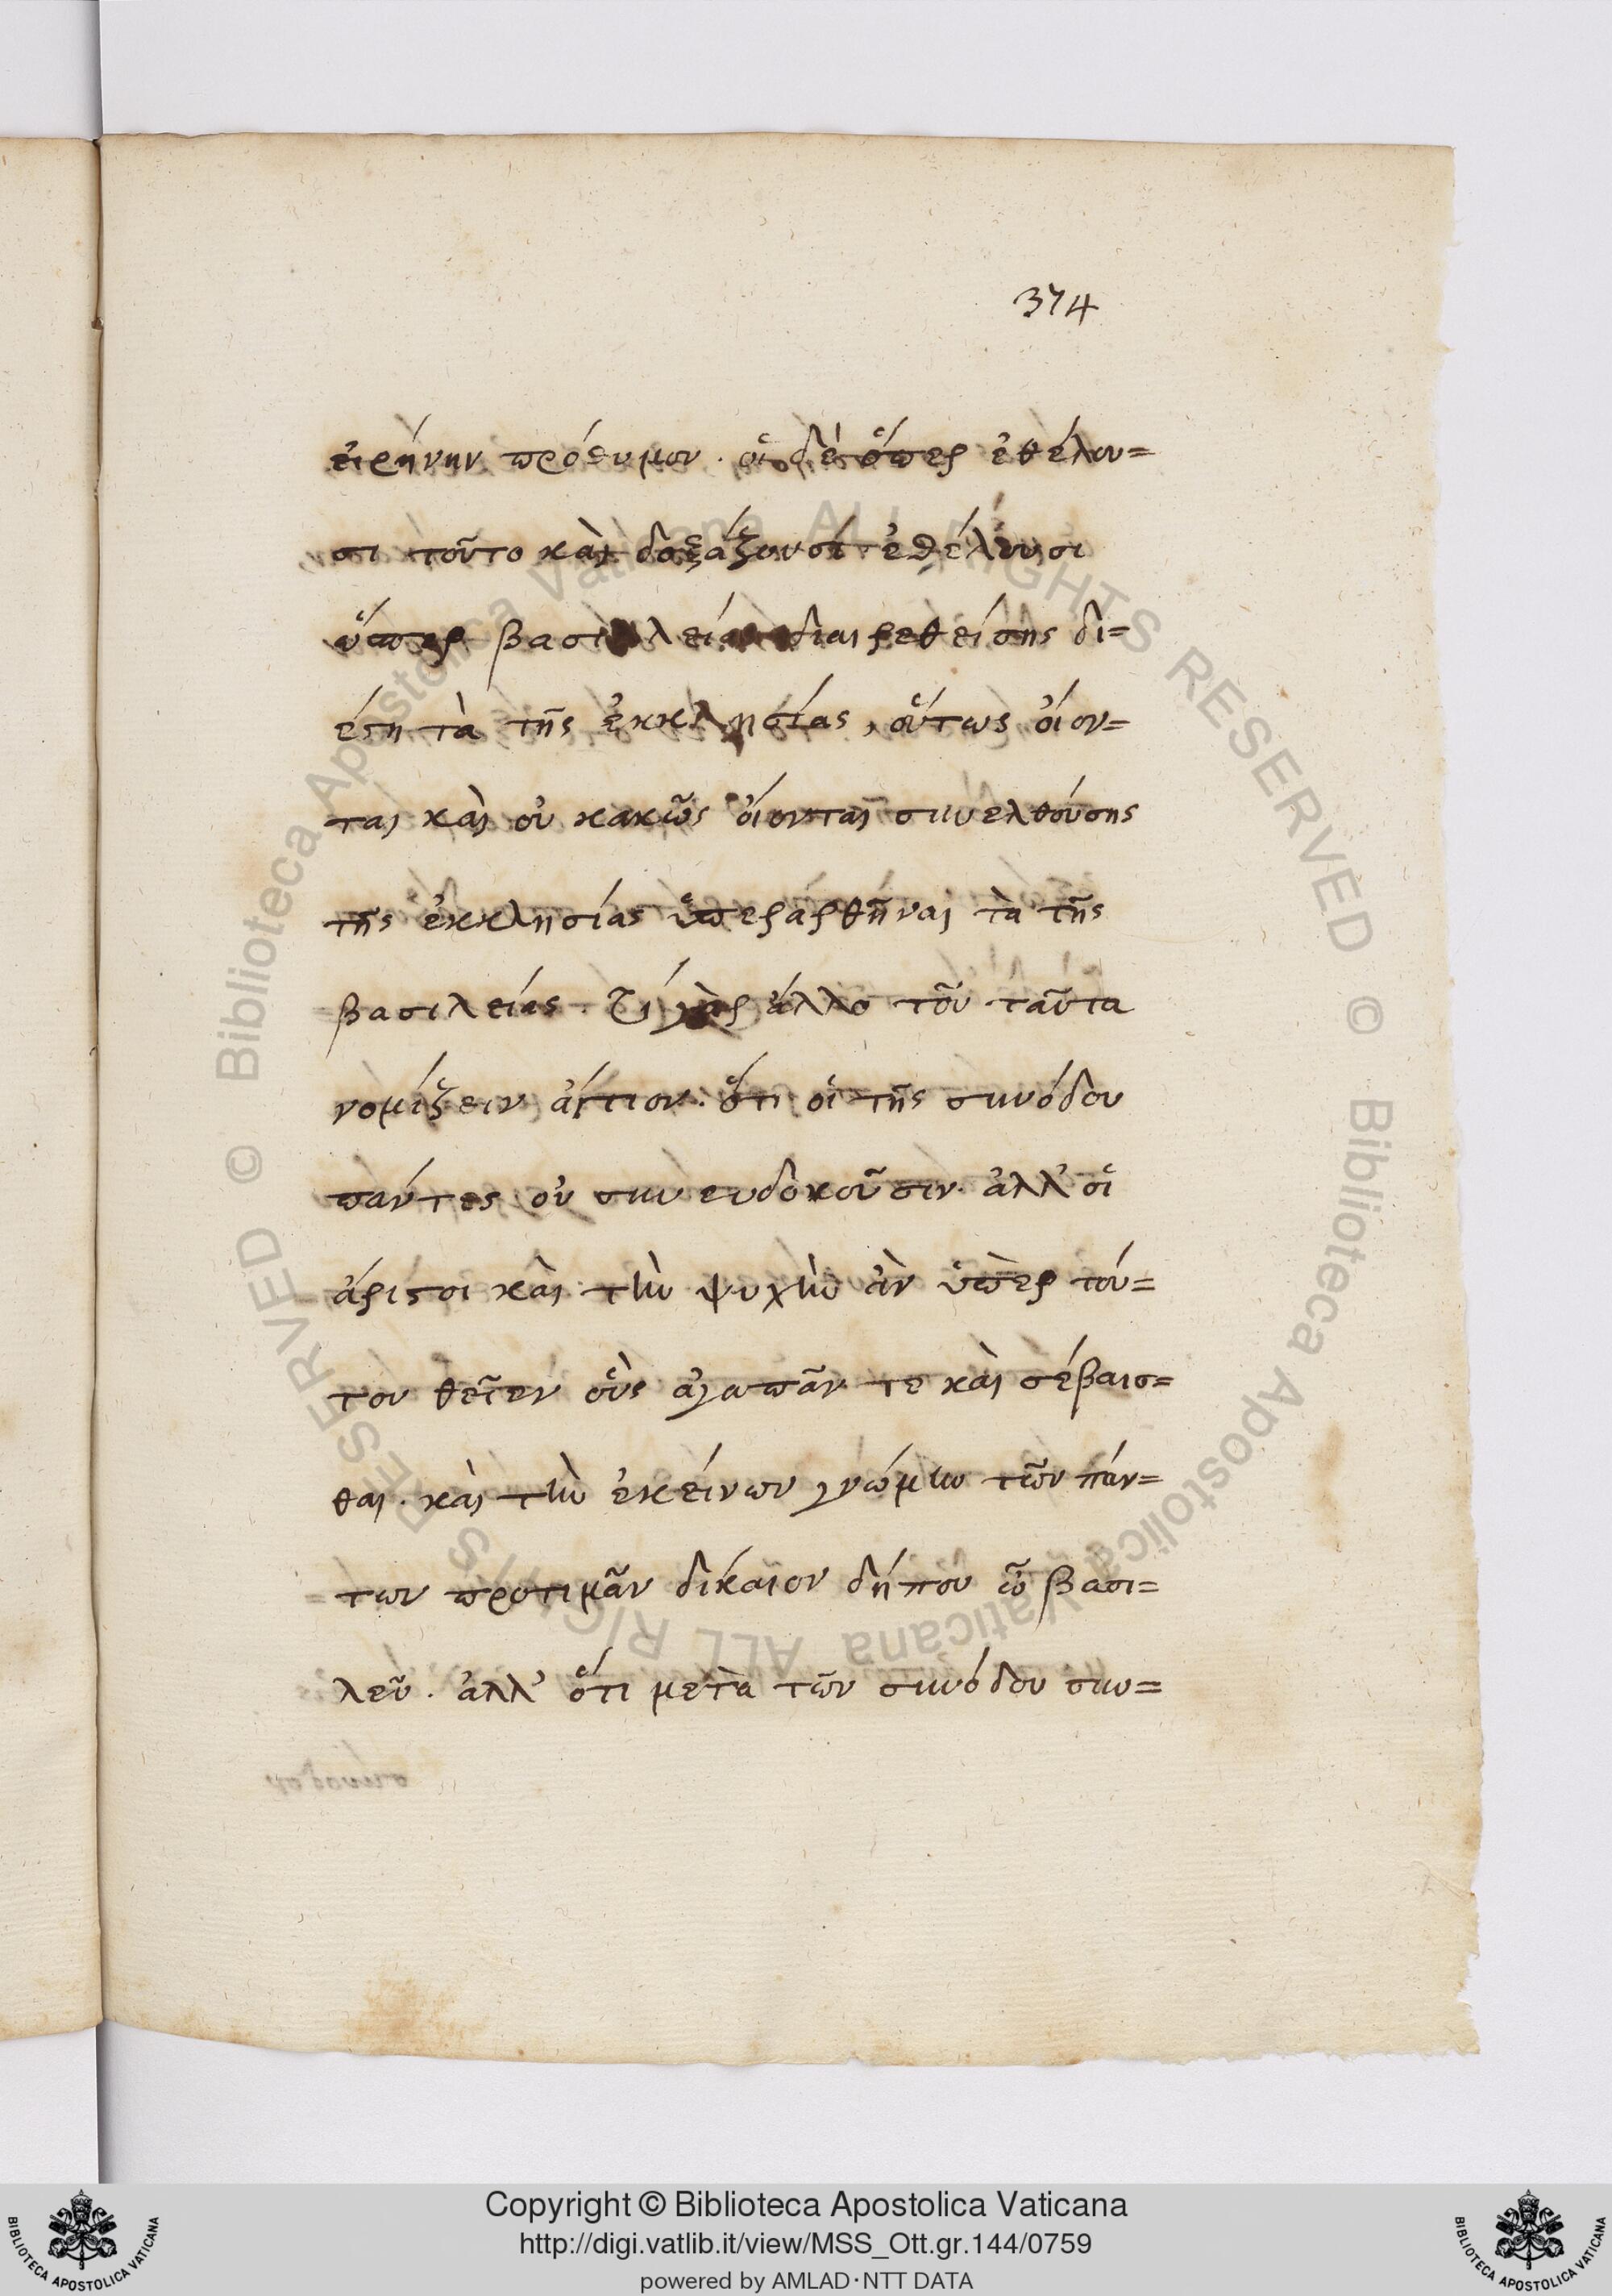 374
εἰρήνην πρόθυμον. οἱ δὲ ὅπερ ἐθέλου=
σι τοῦτο καὶ δοξάζουσι ἐθέλουσι
ὥσπερ βασιλείας διαιρεθείσης δι=
έστη τὰ τῆς ἐκκλησίας, οὕτως οἴον=
ται καὶ οὐ κακῶς οἴονται συνελθούσης
τῆς ἐκκλησίας ὑπεραρθῆναι τὰ τῆς
βασιλείας. Τί γὰρ ἄλλο τοῦ ταῦτα
νομίζειν αἴτιον. ὅτι οἱ τῆς συνόδου
πάντες οὐ συνευδοκοῦσιν. ἀλλ' οἱ
ἄριστοι καὶ τὴν ψυχὴν ἂν ὑπὲρ τού=
του θεῖεν οὓς ἀγαπᾶν τε καὶ σέβαισ=
θαι. καὶ τὴν ἐκείνων γνώμην τῶν πάν=
των προτιμᾶν δίκαιον δήπου ὦ βασι=
λεῦ. ἀλλ' ὅτι μετὰ τῶν συνόδου συν=
Copyright © Biblioteca Apostolica Vaticana
http://digi.vatlib.it/view/MSS_Ott.gr.144/0759
powered by AMLAD·NTT DATA
BIBLIOTECA APOSTOLICA VATICANA
BIBLIOTECA APOSTOLICA VATICANA
© Biblioteca Apostolica Vaticana ALL RIGHTS RESERVED
© Biblioteca Apostolica Vaticana ALL RIGHTS RESERVED